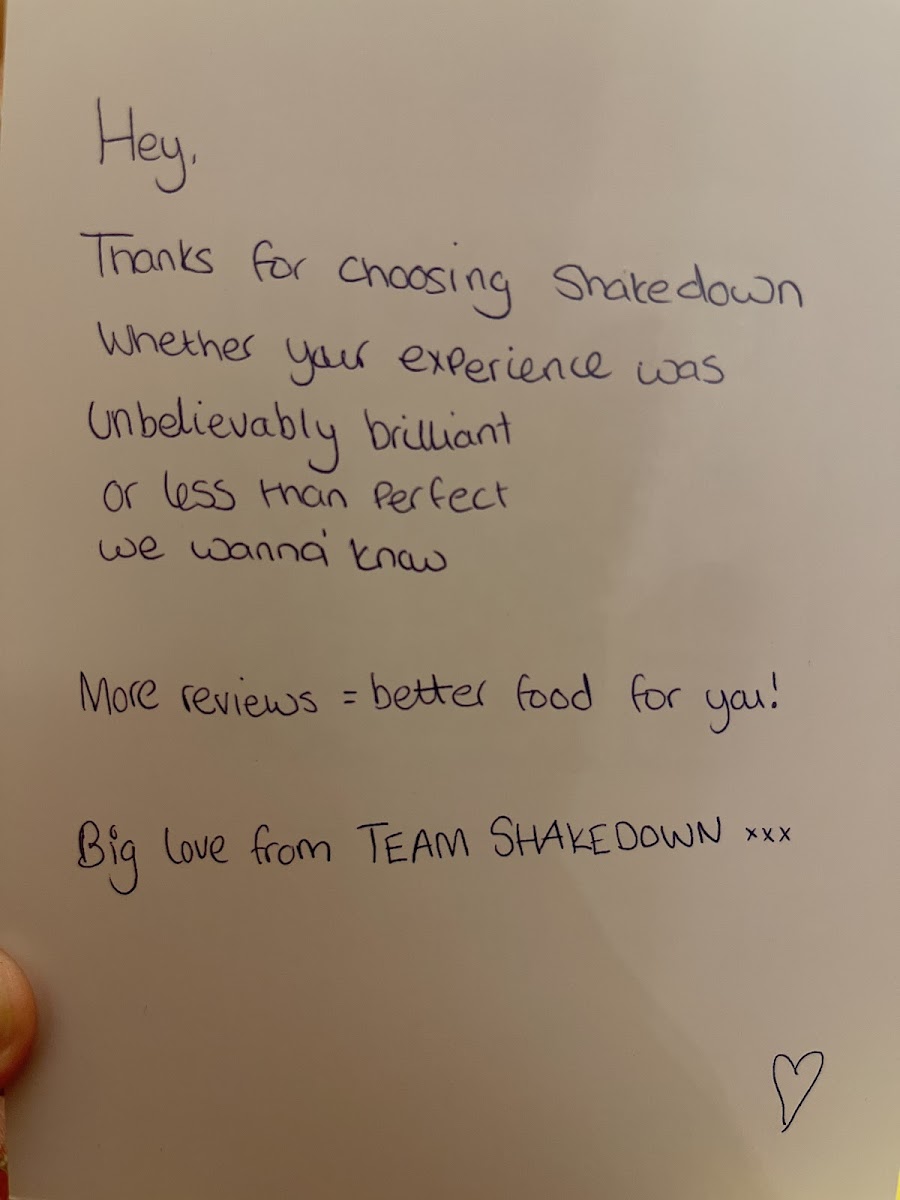 Hey,
Thanks for choosing Shakedown
Whether your experience was
Unbelievably brilliant
or less than perfect
we wanna' know
More reviews = better food for you!
Big love from TEAM SHAKEDOWN xxx